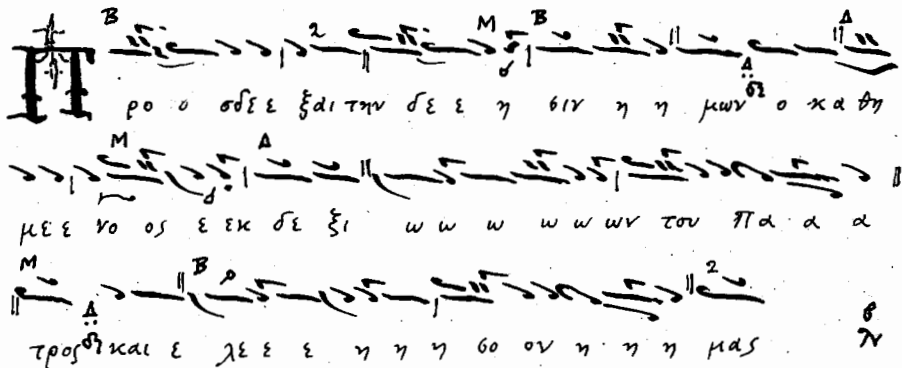 Β 2 Μ Β Δ
Π ρο ο σδε ε ξαι την δε ε η σιν η η μων ο κα θη
Μ Δ
με ε νο ος ε εκ δε ξι ω ω ω ω ω ων του Πα α α
Μ Β 2
τρος και ε λε ε ε η η η σο ον η η η μας